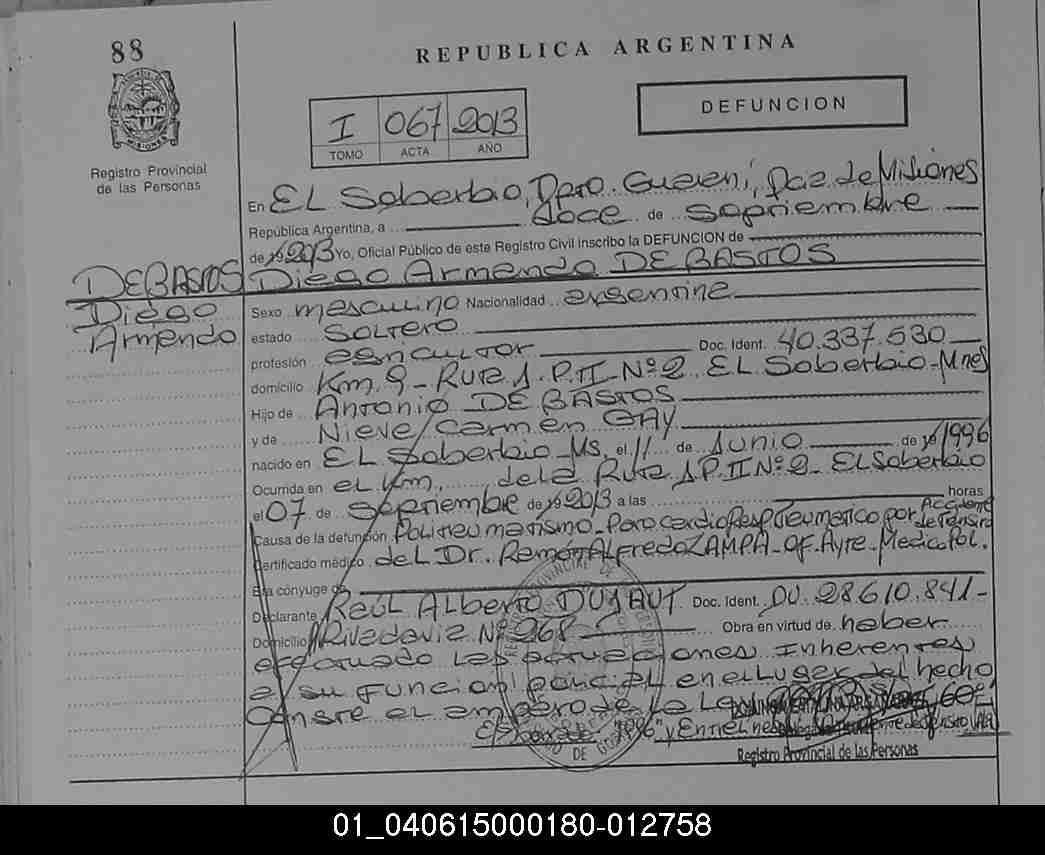 88
REPUBLICA ARGENTINA
MISIONES
Registro Provincial
de las Personas
I 067 2013
TOMO ACTA AÑO
DEFUNCION
En EL Soberbio, Dpto. Guarani, Pcia. de Misiones
República Argentina, a doce de Septiembre
de 19 2013 Yo, Oficial Público de este Registro Civil inscribo la DEFUNCION de
DEBASTOS Diego Armando DEBASTOS
Diego
Armando
Sexo masculino Nacionalidad argentina
estado Soltero
profesión Doc. Ident. 40.337.530
domicilio Km. 9 - Ruta P. II - Nº 2 EL Soberbio - Mnes
Hijo de Antonio DEBASTOS
y de Nieve Carmen GAY
nacido en EL Soberbio - Ms, el 11 de Junio de 19 1996
Ocurrida en el Km. de la Ruta P. II Nº 2 - EL Soberbio
el 07 de Septiembre de 19 2013 a las horas
Causa de la defunción Politraumatismo - Paro Cardio Resp. Traumatico por Accidente de Transito
Certificado médico del Dr. Ramon Alfredo ZAMPA - Of. Ayte - Medico Pol.
Era cónyuge de
Declarante Raúl Alberto Doc. Ident. DU. 28.610.841 -
Domicilio Rivadavia Nº 268 Obra en virtud de haber
efectuado las actuaciones Inherentes
a su Funcion policial en el Lugar del hecho
Conste el amparo de la Ley
"1996" y Entrelineas de Transito Vale
Registro Provincial de las Personas
01_040615000180-012758